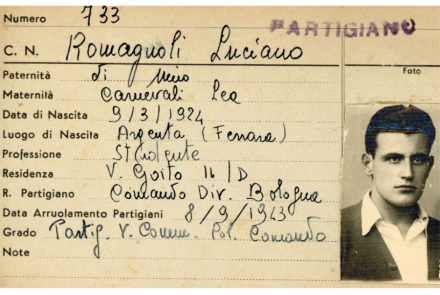 Numero 733
PARTIGIANO
C. N. Romagnoli Luciano
Foto
Paternità di Nino
Maternità Carnevali Lea
Data di Nascita 9/3/1924
Luogo di Nascita Argenta (Ferrara)
Professione Studente
Residenza V. Goito 16/D
R. Partigiano Comando Div. Bologna
Data Arruolamento Partigiani 8/9/1943
Grado Partig. V. Comm. Pol. Comando
Note